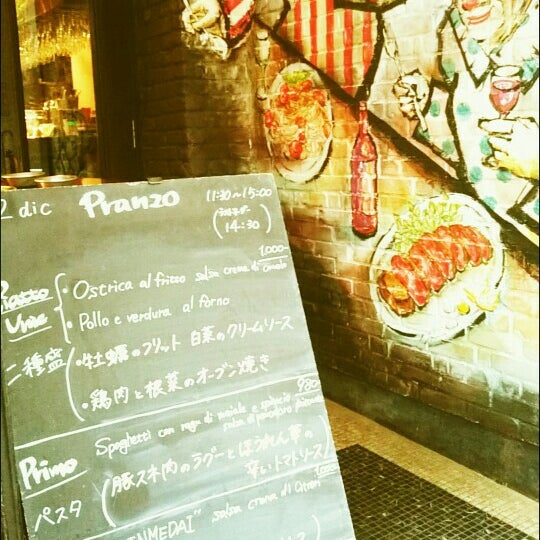 2 dic Pranzo 11:30~15:00
(ラストオーダー 14:30)
Piatto Unico
1,000-
• Ostrica al fritto salsa crema di
• Pollo e verdura al forno
二種盛
・牡蠣のフリット 白菜のクリームソース
・鶏肉と根菜のオーブン焼き
Primo
Spaghetti con ragu di maiale e spinacio
salsa di pomodoro
パスタ
豚スネ肉のラグーとほうれん草の
辛いトマトソース
1,000-
"KINMEDAI" salsa crema di